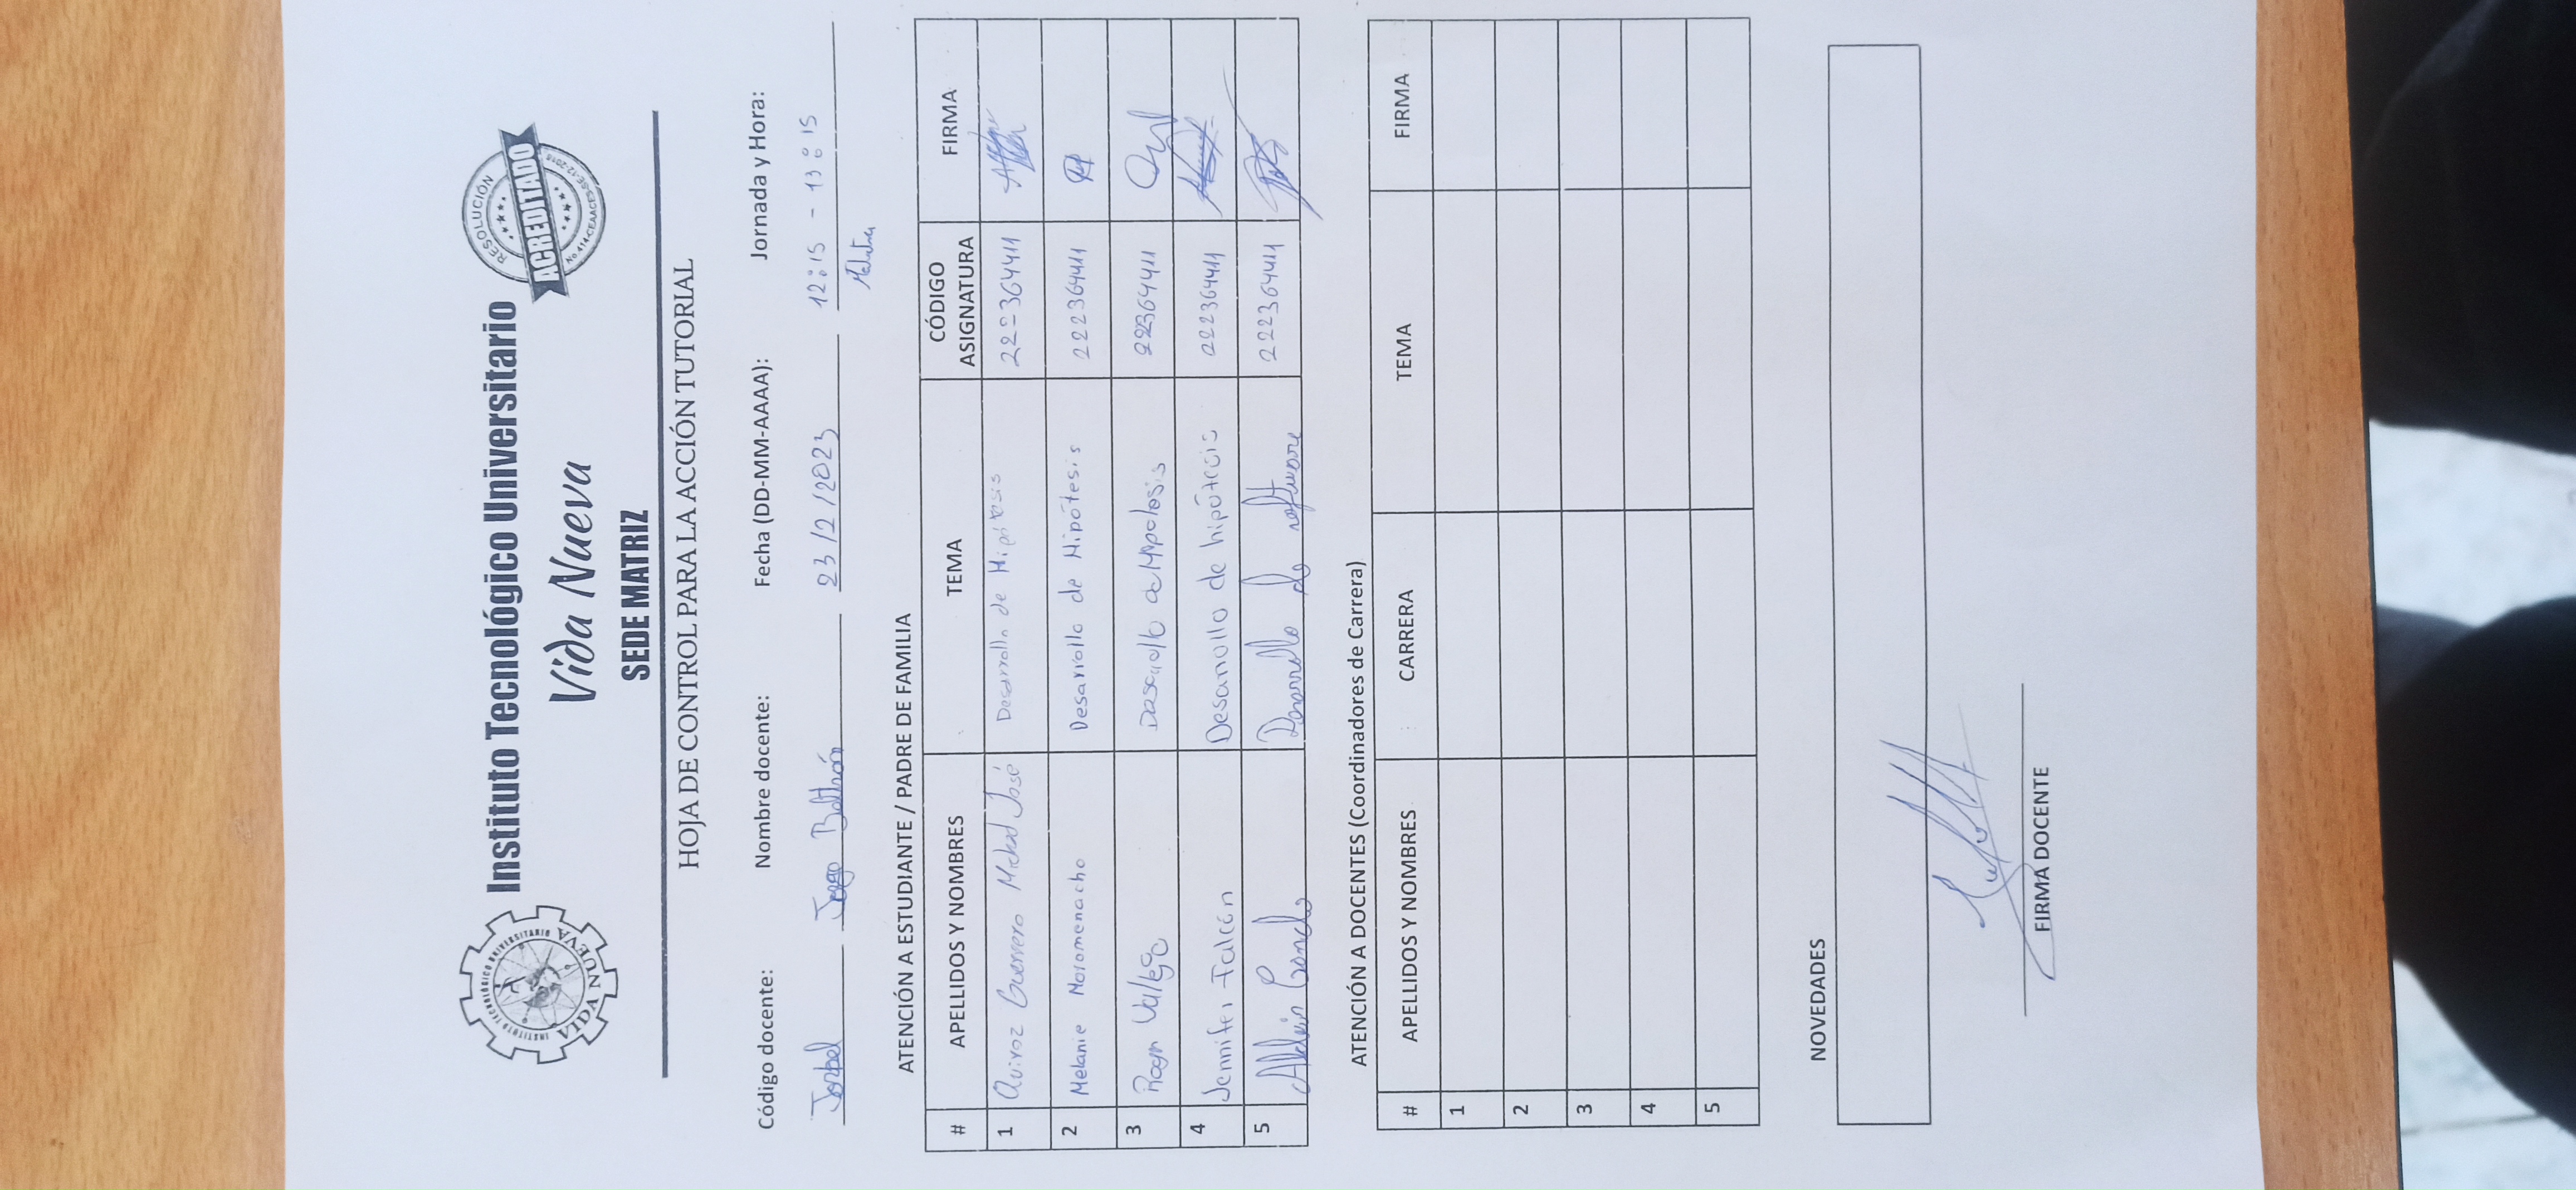 INSTITUTO TECNOLÓGICO UNIVERSITARIO
VIDA NUEVA
Instituto Tecnológico Universitario
Vida Nueva
SEDE MATRIZ
RESOLUCIÓN
ACREDITADO
HOJA DE CONTROL PARA LA ACCIÓN TUTORIAL
Código docente: Nombre docente: Fecha (DD-MM-AAAA): Jornada y Hora:
23/2/2023 12:15 - 13:15
ATENCIÓN A ESTUDIANTE / PADRE DE FAMILIA
# APELLIDOS Y NOMBRES TEMA CÓDIGO ASIGNATURA FIRMA
1 Quiroz Guerrero Michael José Desarrollo de Hipótesis
2 Melanie Moromenacho Desarrollo de Hipótesis 222364411
3 Roger Vallejo
4 Jennifer Falcón Desarrollo de hipótesis 222364411
5 Desarrollo de software 222364411
ATENCIÓN A DOCENTES (Coordinadores de Carrera)
# APELLIDOS Y NOMBRES CARRERA TEMA FIRMA
1
2
3
4
5
NOVEDADES
FIRMA DOCENTE